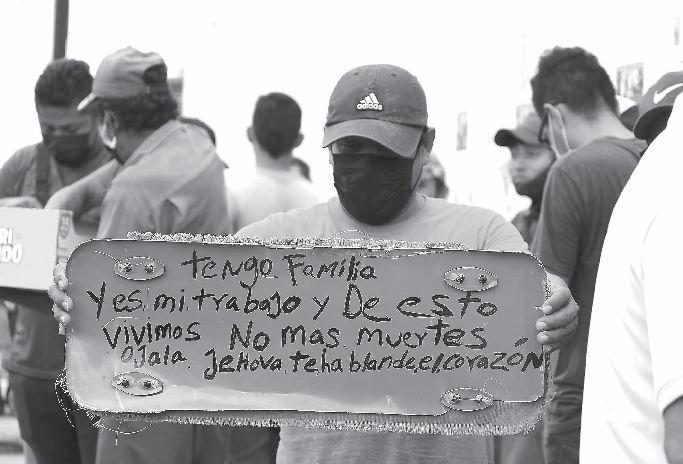 adidas
RI
NDO
tengo Familia
Yes, mi, trabajo y De esto
Vivimos No mas muertes
Ojala, Jehova, te ha blande, el corazón